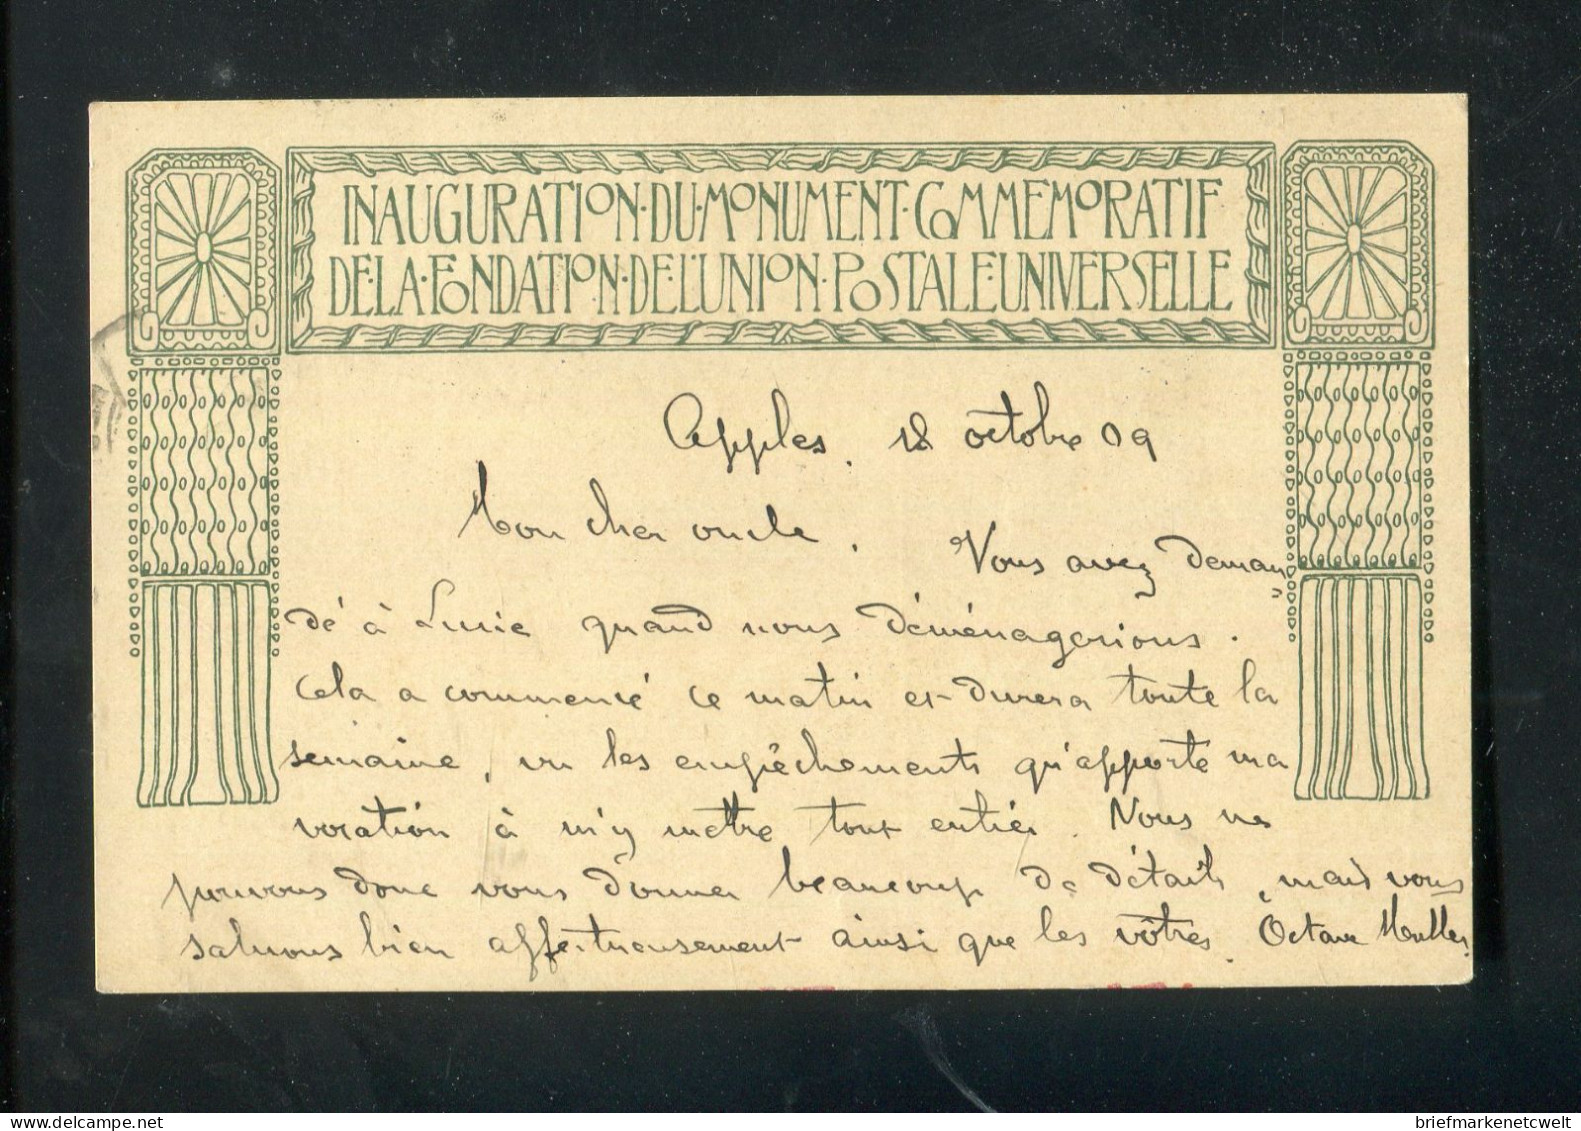 INAUGURATION·DU·MONUMENT·COMMEMORATIF
DE·LA·FONDATION·DE·L'UNION·POSTALE·UNIVERSELLE
Apples, 18 octobre 09
Mon cher oncle,
Vous avez deman=
dé à Lucie quand nous déménagerions.
Cela a commencé ce matin et durera toute la
semaine, vu les empêchements qu'apporte ma
vocation à m'y mettre tout entier. Nous ne
pouvons donc vous donner beaucoup de détails, mais vous
saluons bien affectueusement ainsi que les vôtres. Octave
briefmarkenetcwelt @ delcampe.net